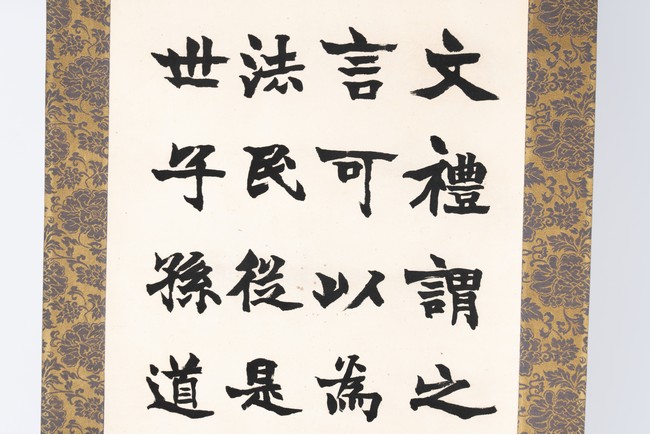 文禮謂之
言可以為
法民從是
世子孫道